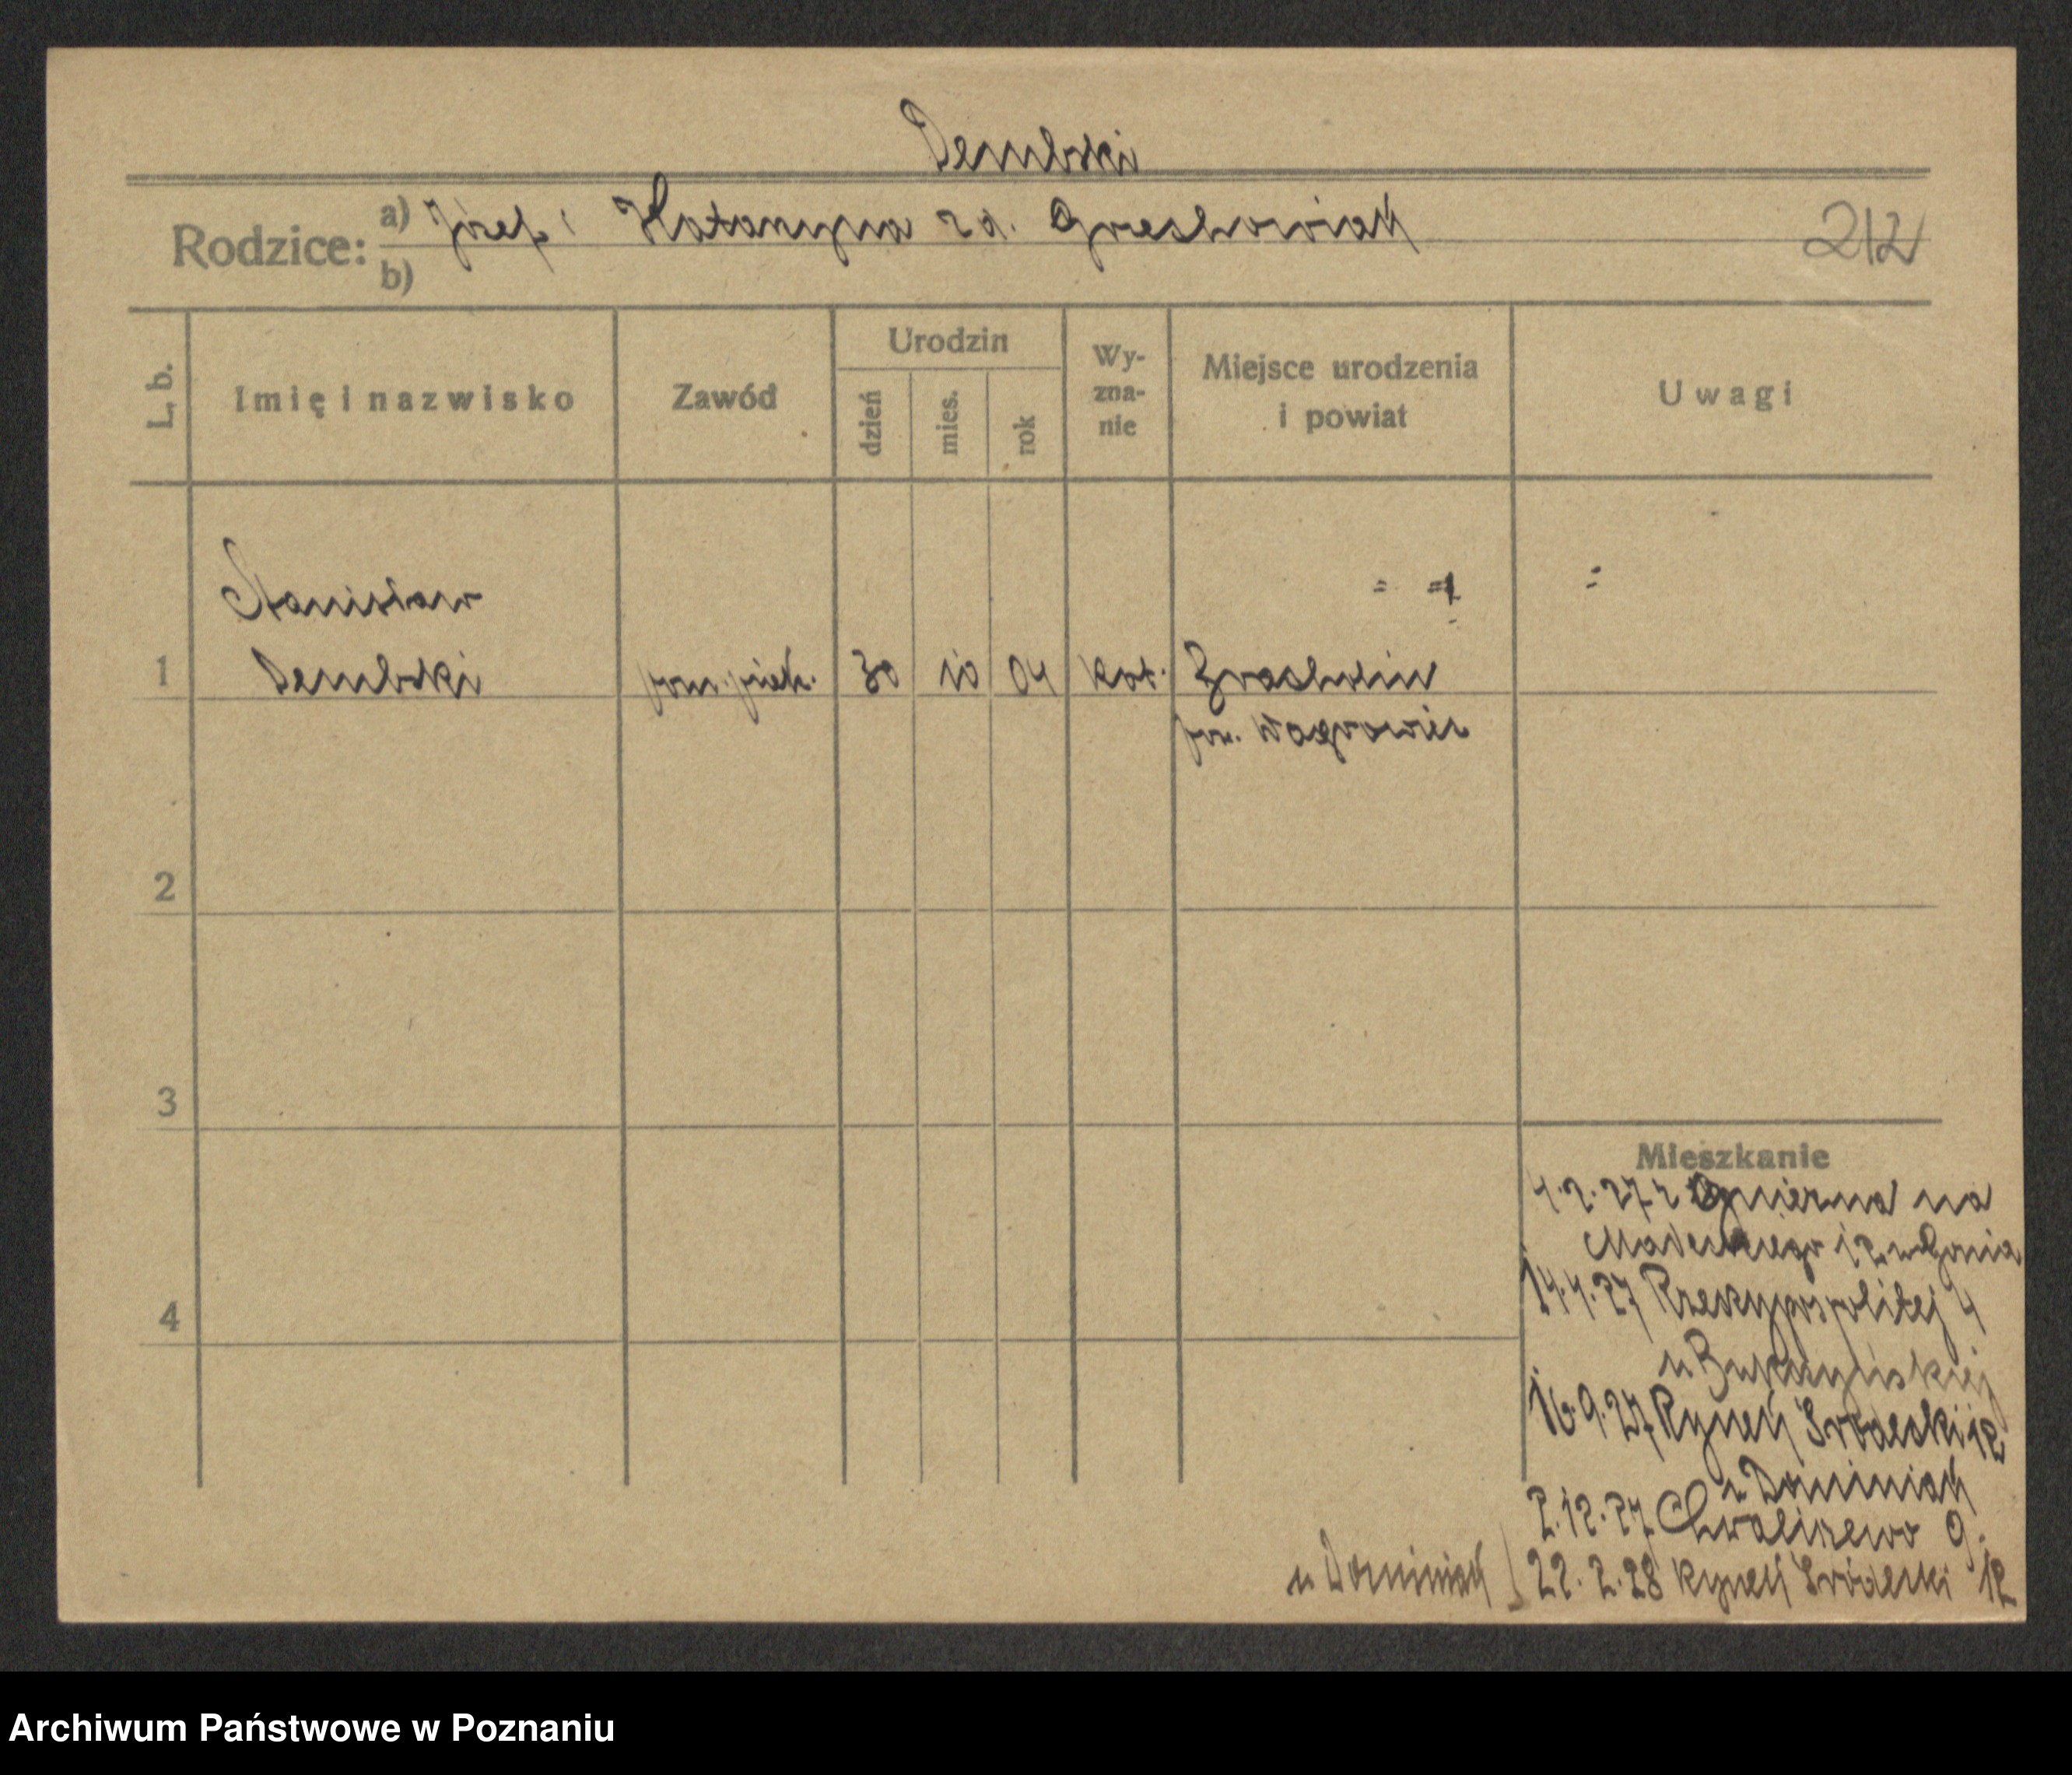 Dembski
Rodzice: a) Józef i Katarzyna zd. Grześkowiak
b)
212
L. b.
Imię i nazwisko
Zawód
Urodzin
dzień
mies.
rok
Wy-
zna-
nie
Miejsce urodzenia
i powiat
Uwagi
Stanisław
1 Dembski pom. piek. 30 10 04 kat.
pow. Wągrowiec
2
3
4
Mieszkanie
4.2.27 z Gniezna na
12
14.4.27 Rzeczypospolitej 4
u
16.9.27 Rynek Śródecki 12
u Dominiak
2.12.27 Chwaliszewo 9.
u Dominiak 22.2.28 Rynek Śródecki 12
Archiwum Państwowe w Poznaniu